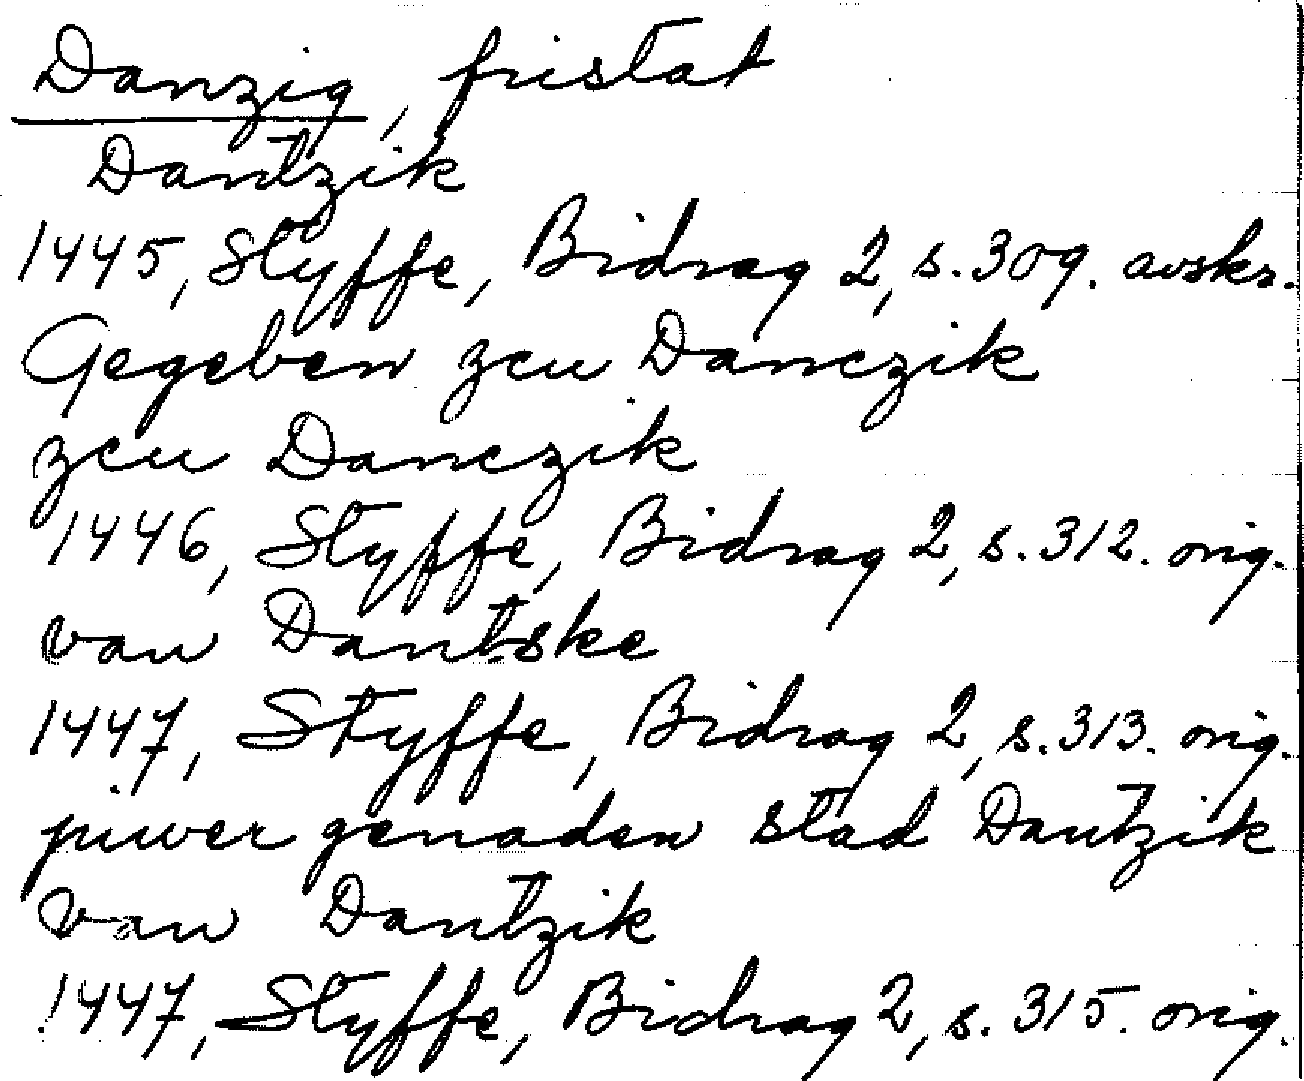 Danzig, fristat
Dantzik
1445, Styffe, Bidrag 2, s. 309. avskr.
Gegeben zcu Danczik
zcu Danczik
1446, Styffe, Bidrag 2, s. 312. orig.
van Dantske
1447, Styffe, Bidrag 2, s. 313. orig.
juwer genaden stad Dantzik
van Dantzik
1447, Styffe, Bidrag 2, s. 315. orig.